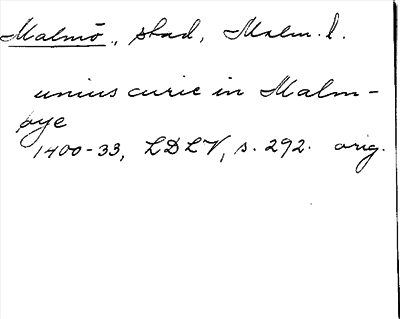 Malmö, stad, Malm. l.
unius curie in Malm-
øye
1400-33, LDLV, s. 292. orig.